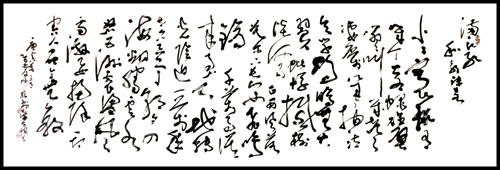 满江红
和郭沫若
小小寰球有
几个苍蝇碰壁
嗡嗡叫几声凄
厉几声抽泣
蚂蚁缘槐夸大
国蚍蜉撼树
谈何易正西风落
叶下长安飞鸣
镝多少事从
来急天地转
光阴迫一万年
太久只争朝夕
四海翻腾云水
怒五洲震荡风雷
激要扫除一切
害人虫全无敌